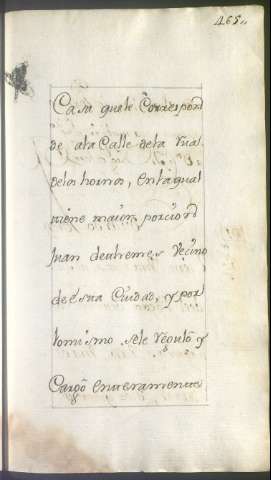 465,,
Casa que le Correspond
de a la Calle de la Rua
de los hornos, en la qual
tiene maior porcion
Juan Vecino
de esta Ciudad, y por
lo mismo se le reguló y
Cargò enteramente